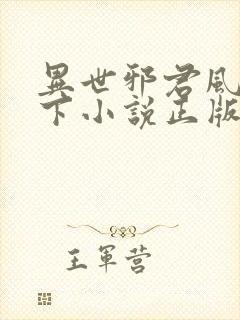 異世邪君風
下小說正版
王軍营